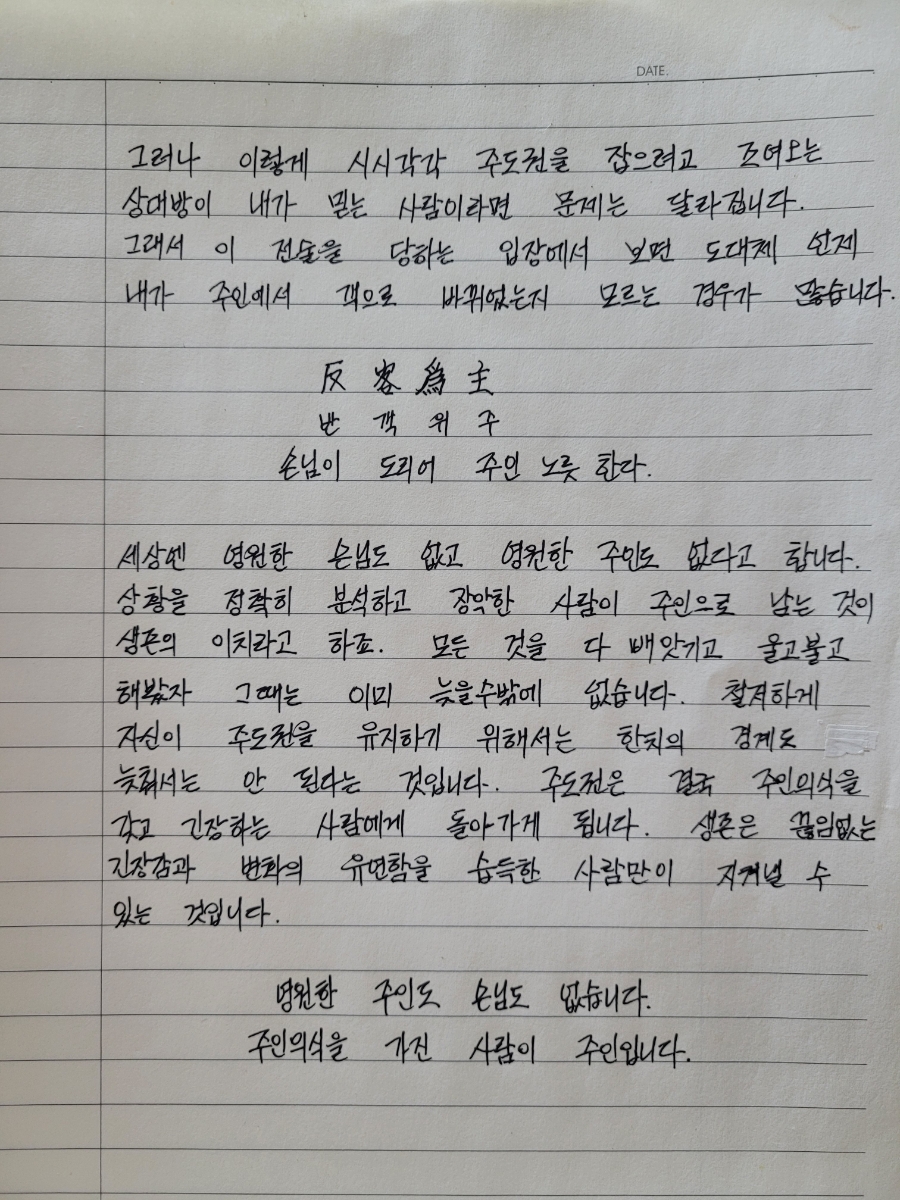 DATE.
그러나 이렇게 시시각각 주도권을 잡으려고 조여오는
상대방이 내가 믿는 사람이라면 문제는 달라집니다.
그래서 이 전술을 당하는 입장에서 보면 도대체 언제
내가 주인에서 객으로 바뀌었는지 모르는 경우가 많습니다.
反客爲主
반객위주
손님이 도리어 주인 노릇 한다.
세상엔 영원한 손님도 없고 영원한 주인도 없다고 합니다.
상황을 정확히 분석하고 장악한 사람이 주인으로 남는 것이
생존의 이치라고 하죠. 모든 것을 다 빼앗기고 울고불고
해봤자 그때는 이미 늦을수밖에 없습니다. 철저하게
자신이 주도권을 유지하기 위해서는 한치의 경계도
늦춰서는 안 된다는 것입니다. 주도권은 결국 주인의식을
갖고 긴장하는 사람에게 돌아가게 됩니다. 생존은 끊임없는
긴장감과 변화의 유연함을 습득한 사람만이 지켜낼 수
있는 것입니다.
영원한 주인도 손님도 없습니다.
주인의식을 가진 사람이 주인입니다.